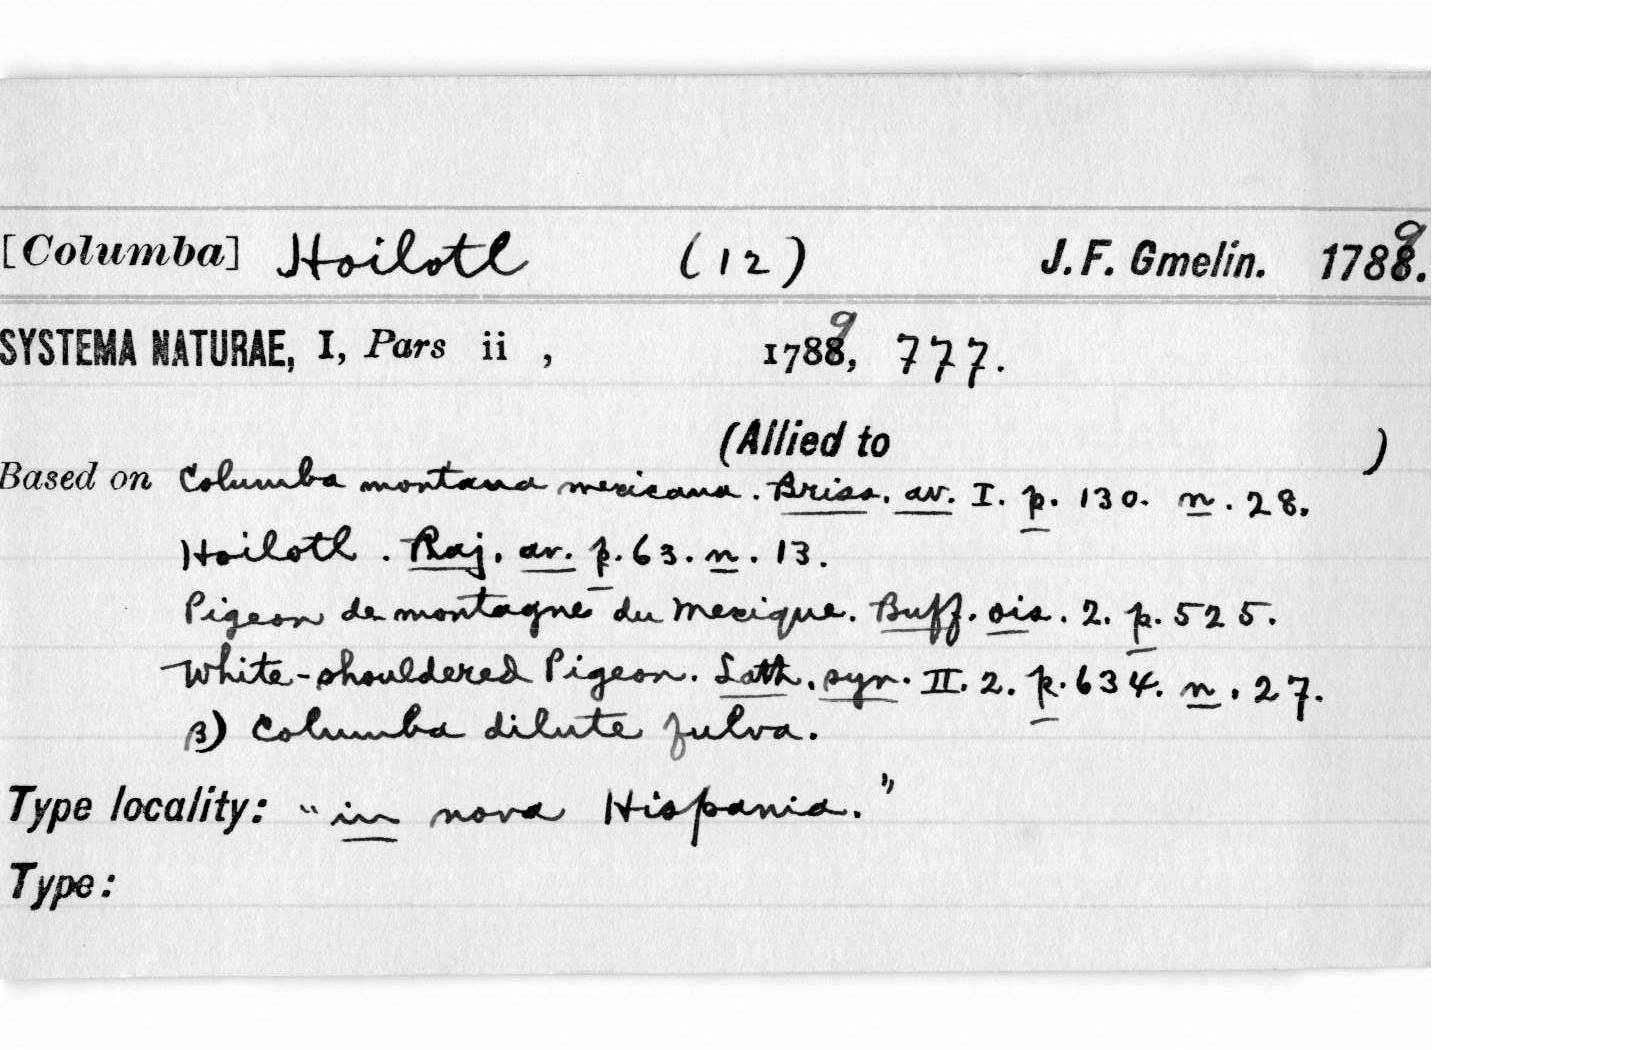 [Columba] Hoilotl (12) J. F. Gmelin. 1789.
SYSTEMA NATURAE, I, Pars ii , 1789, 777.
(Allied to )
Based on Columba montana mexicana. Briss. av. I. p. 130. n. 28.
Hoilotl. Raj. av. p. 63. n. 13.
Pigeon de montagne du Mexique. Buff. ois. 2. p. 525.
White-shouldered Pigeon. Lath. syn. II. 2. p. 634. n. 27.
β) Columba dilute fulva.
Type locality: "in nova Hispania."
Type: